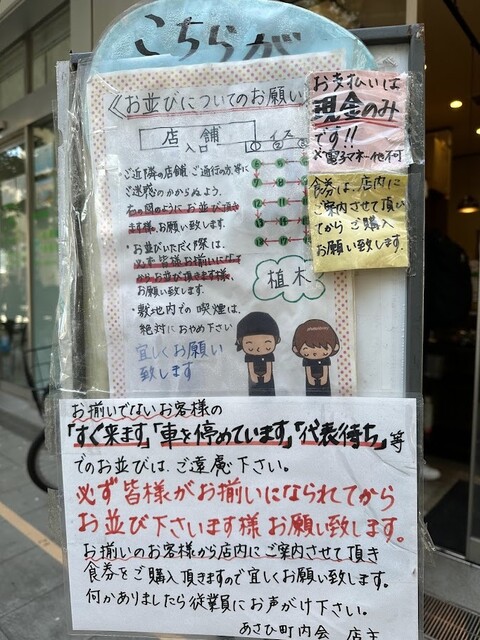 こちらが
≪お並びについてのお願い
店舗
入口
イス
① ② ③
・ご近隣の店舗、ご通行の方等に
ご迷惑のかからぬよう、
右の図のようにお並び頂き
ます様、お願い致します。
・お並びいただく際は、
必ず皆様お揃いになって
からお並び頂きます様、
お願い致します。
・敷地内での喫煙は、
絶対におやめ下さい
宜しくお願い
致します
植木
お支払いは
現金のみ
です!!
※電子マネー他不可
食券は、店内に
ご案内させて頂い
てからご購入
お願い致します。
お揃いでないお客様の
「すぐ来ます」「車を停めています」「代表待ち」等
でのお並びは、ご遠慮下さい。
必ず皆様がお揃いになられてから
お並び下さいます様お願い致します。
お揃いのお客様から店内にご案内させて頂き
食券をご購入頂きますので宜しくお願い致します。
何かありましたら従業員にお声がけ下さい。
あさひ町内会 店主